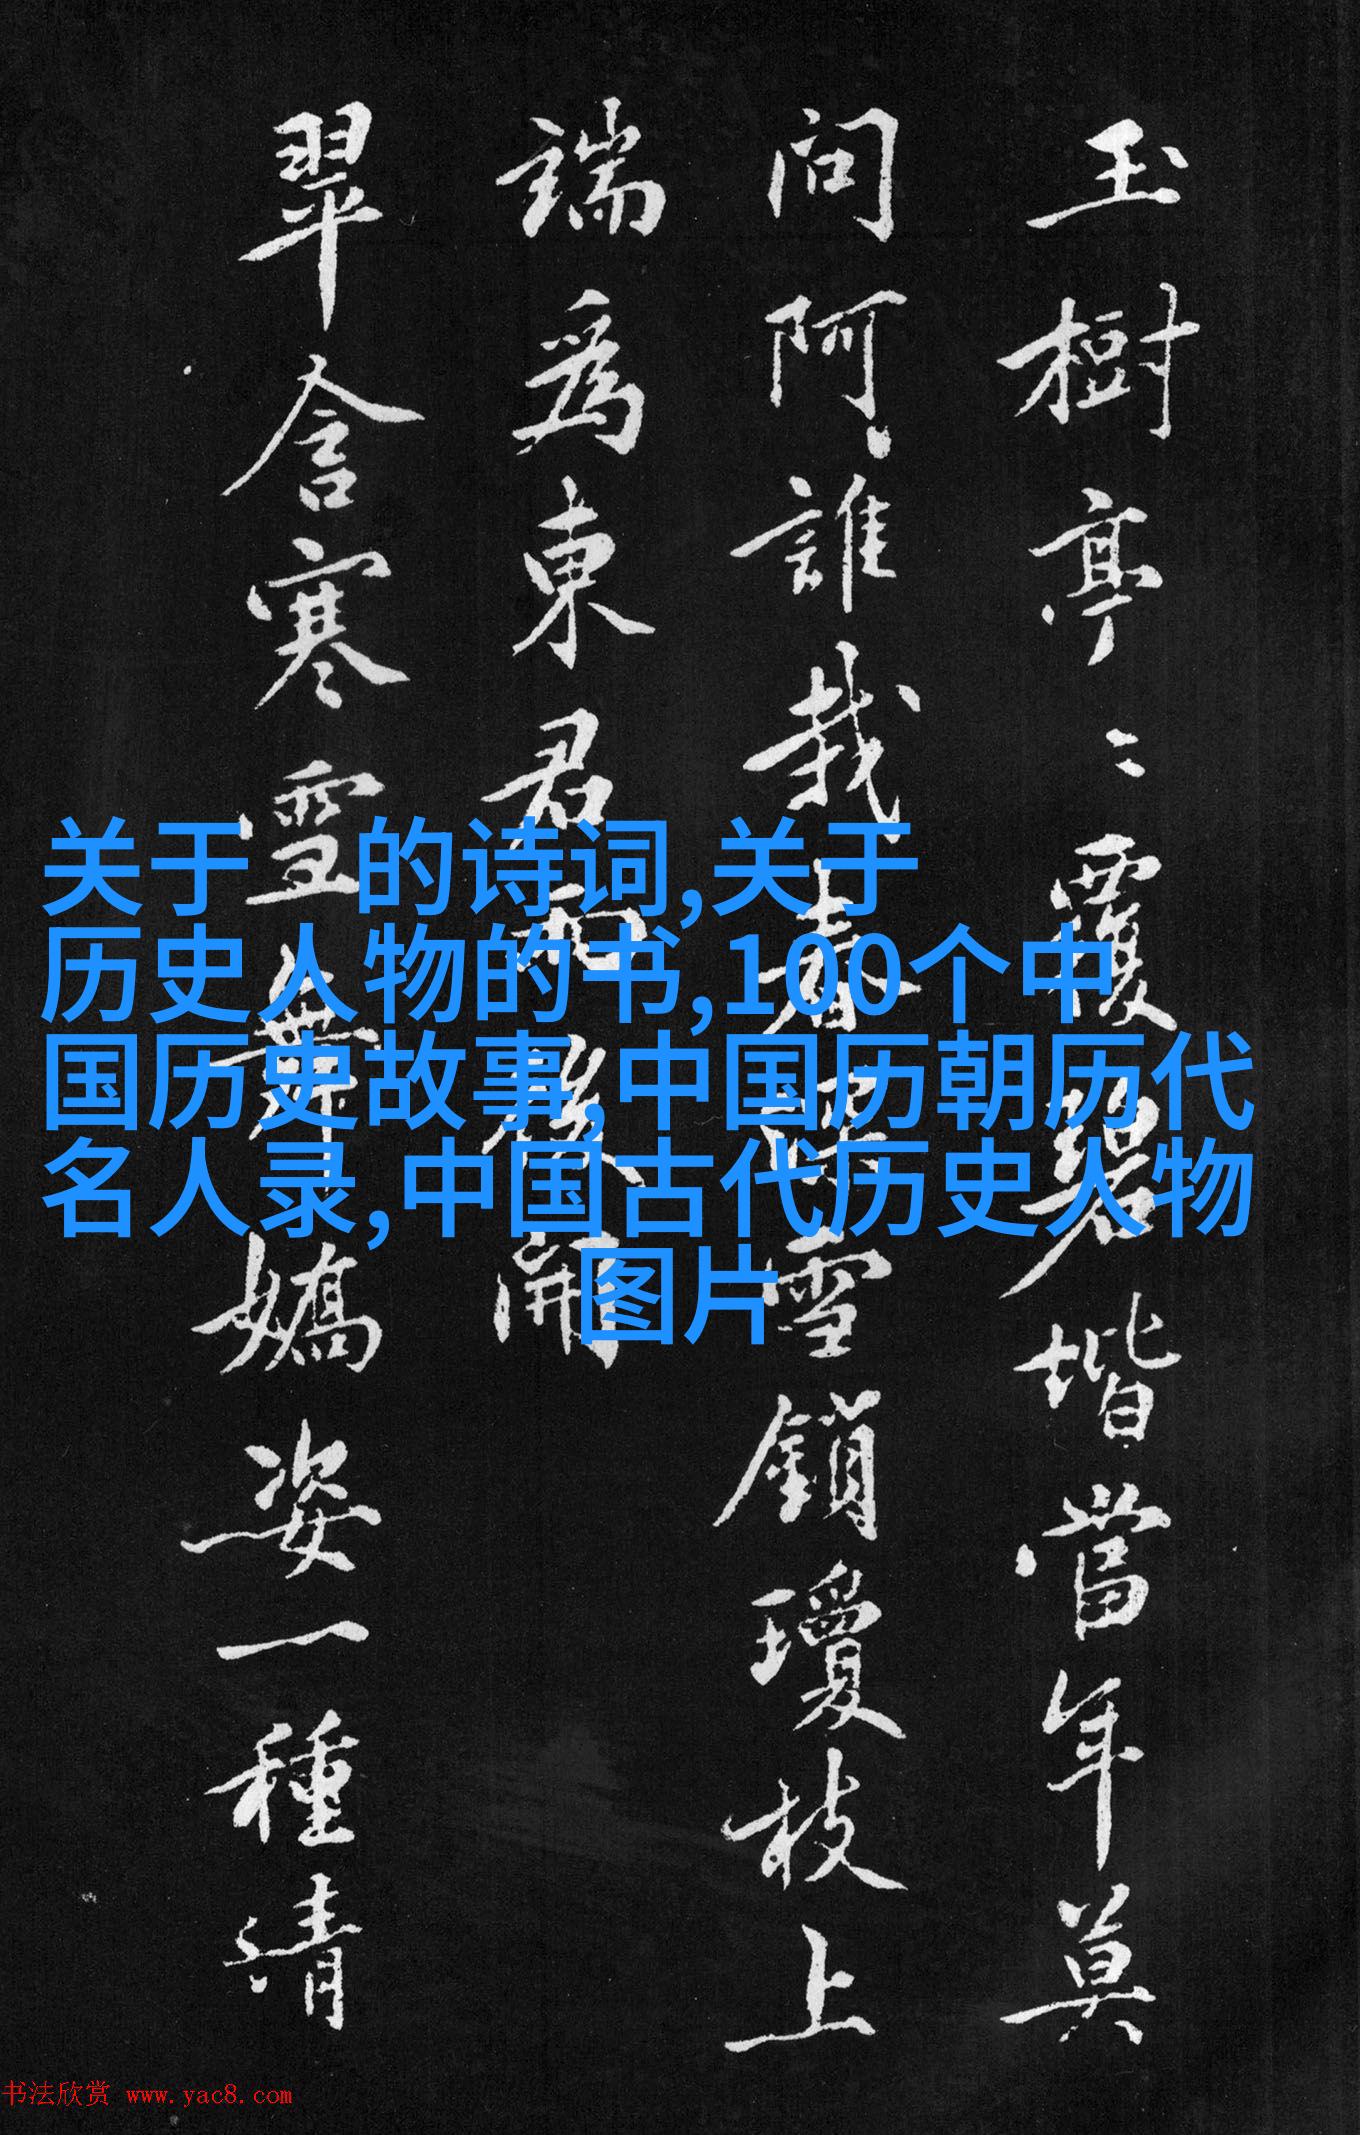 玉樹亭〻覆碧堦當年莫
問阿誰栽春雪鎖瓊枝上
端為東君和開
翠含寒雪舞嬌姿一種清
关于 的诗词,关于
历史人物的书,100个中
国历史故事,中国历朝历代
名人录,中国古代历史人物
图片
书法欣赏 www.yac8.com